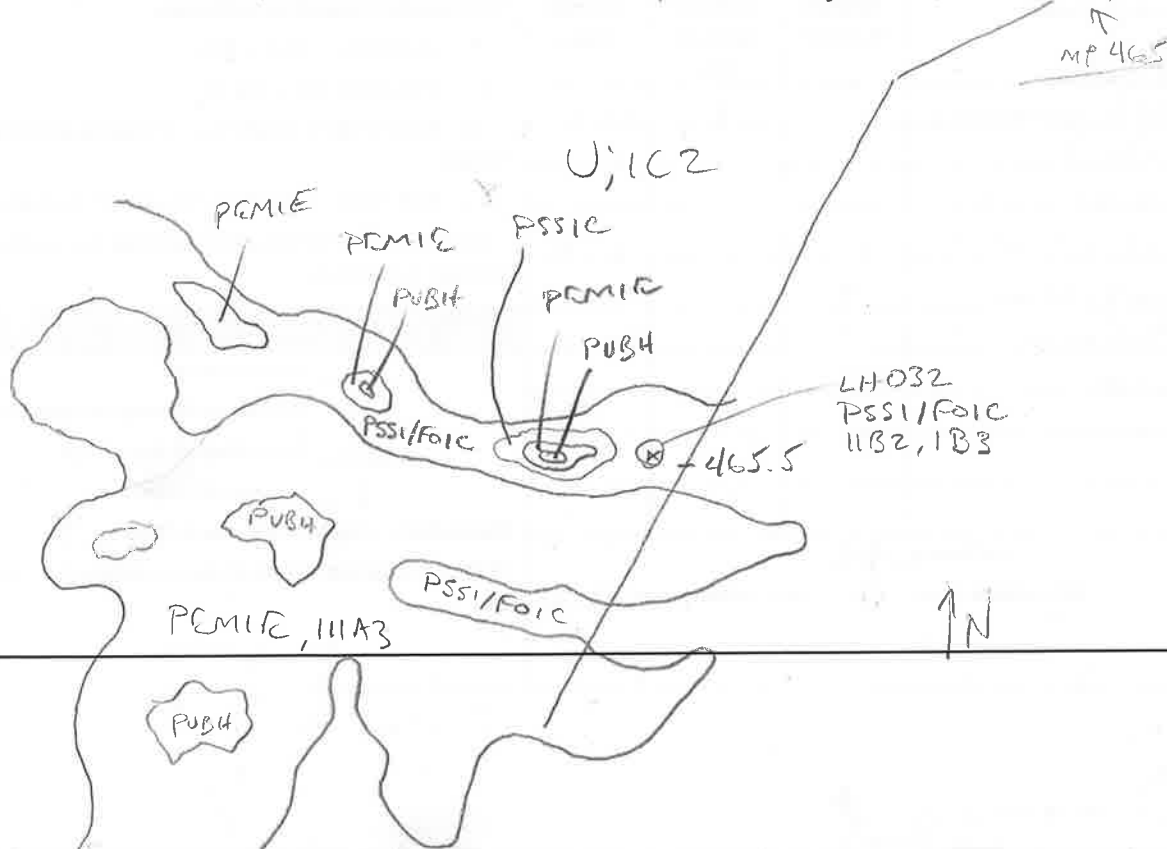 MP 465
U; 1C2
PEM1E
PEM1E
PSS1C
PUBH
PEM1E
PUBH
LH032
PSS1/FO1C
11B2, 1B3
PSS1/FO1C
-465.5
PUBH
PSS1/FO1C
N
PEM1E, 111A3
PUBH